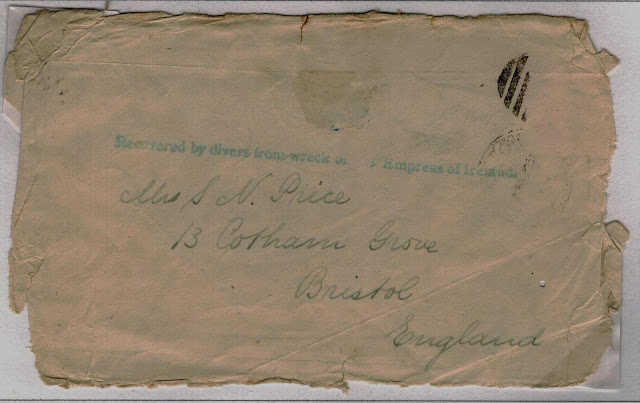 Recovered by divers from wreck of Empress of Ireland.
Mrs S N. Price
13 Cotham Grove
Bristol
England